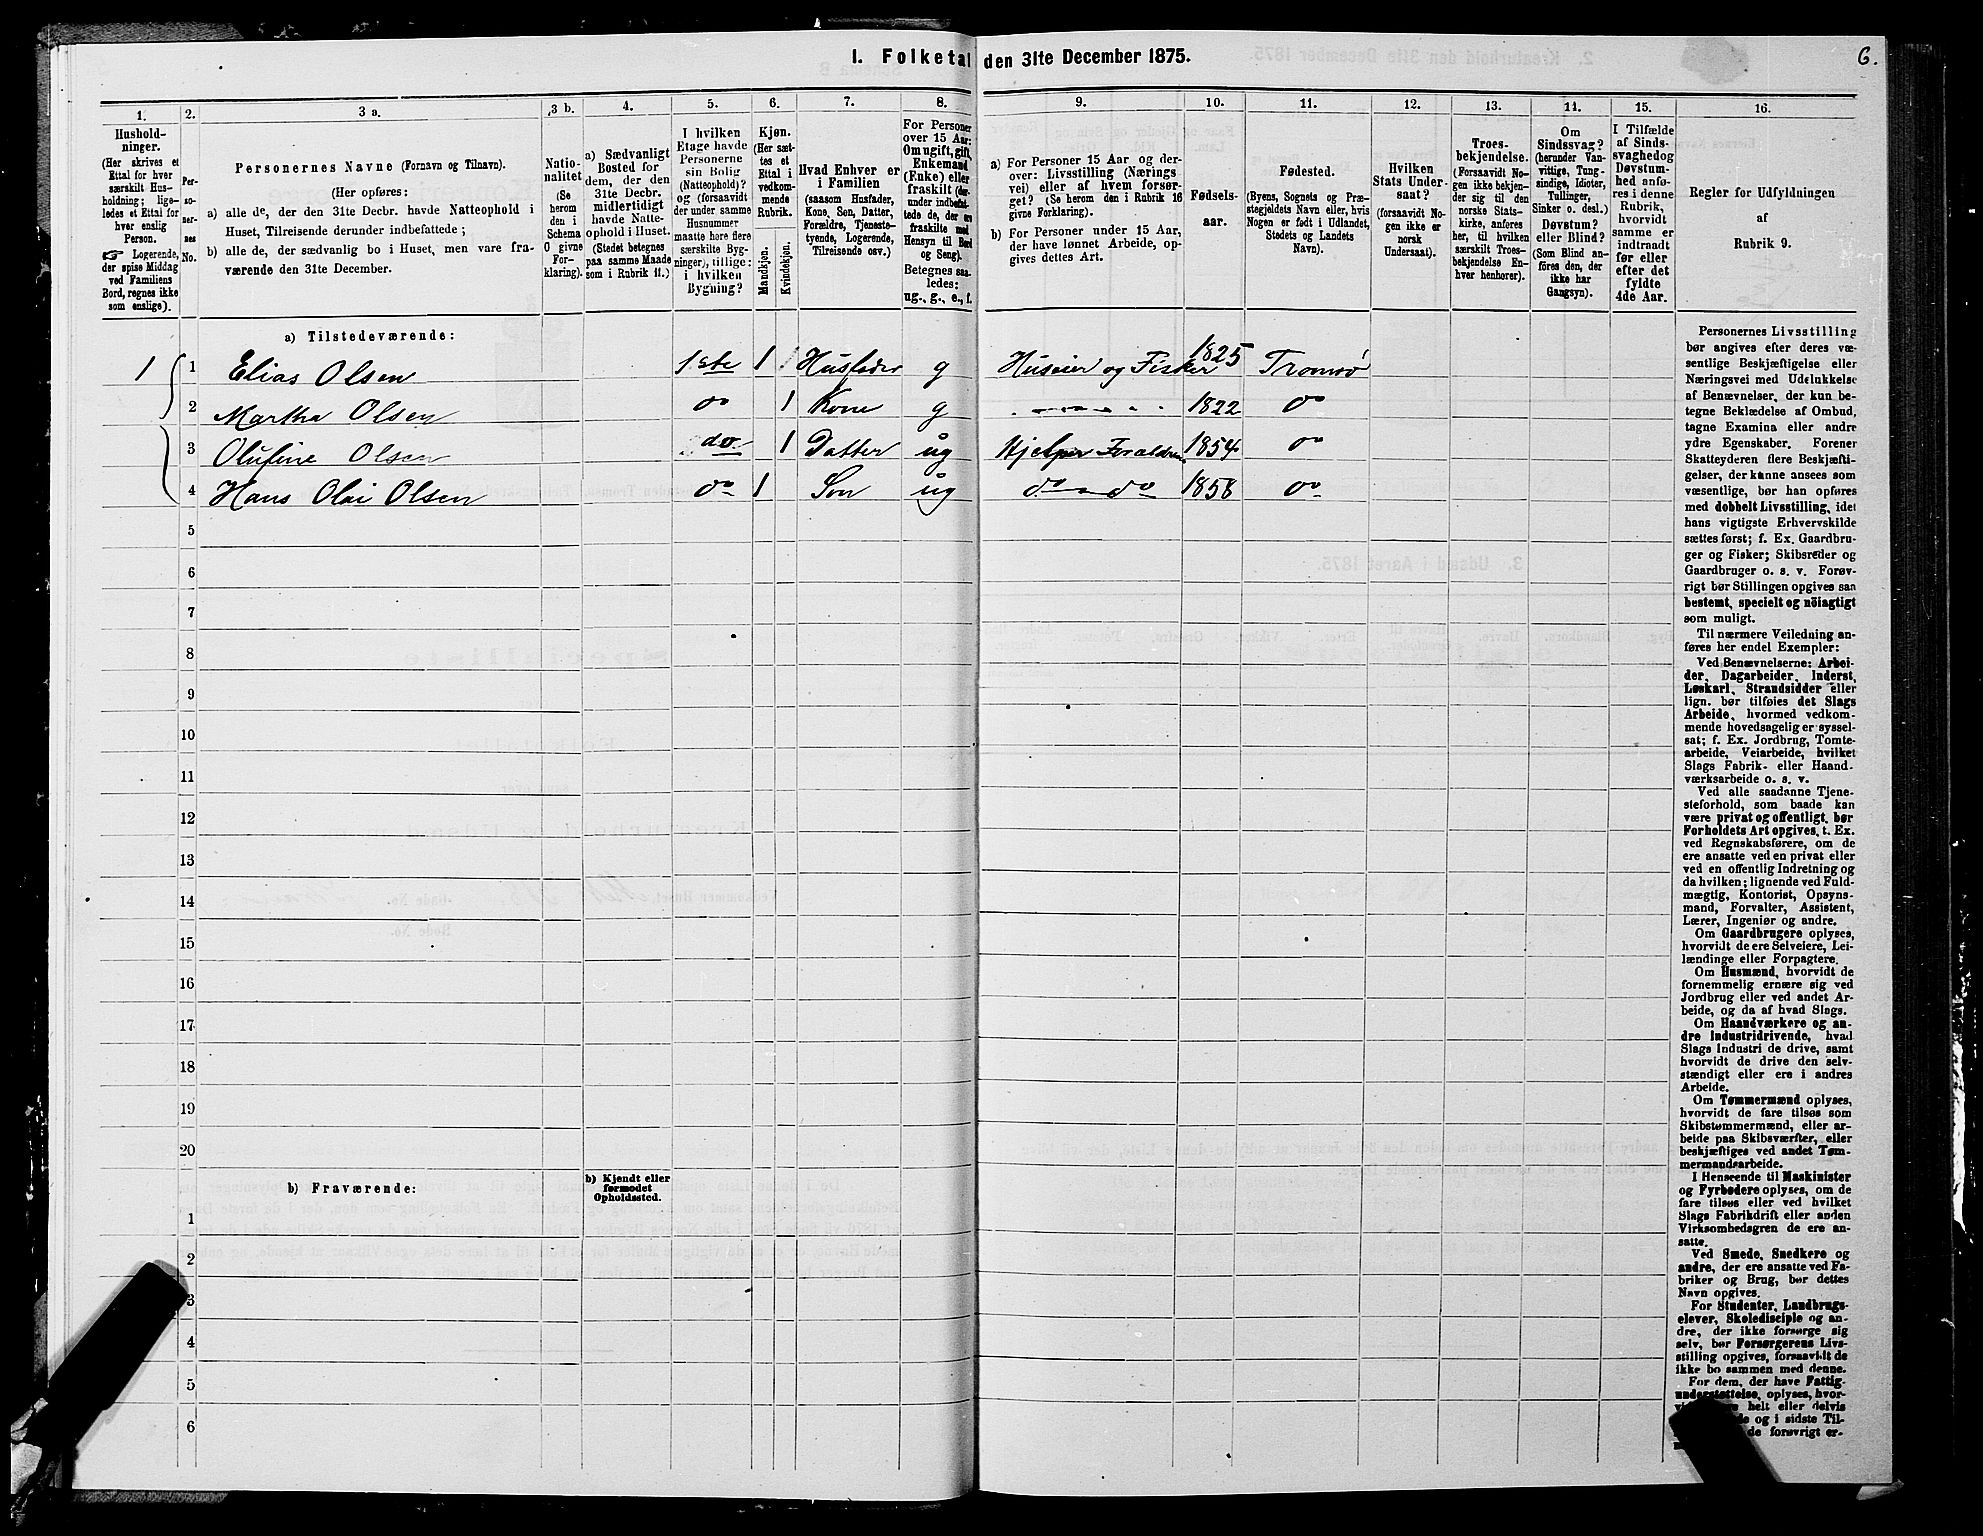 I. Folketal den 31te December 1875.
6.
1.
Hushold-
ninger.
(Her skrives et
Ettal for hver
særskilt Hus-
holdning; lige-
ledes et Ettal for
hver enslig
Person.
☞ Logerende,
der spise Middag
ved Familiens
Bord, regnes ikke
som enslige).
2.
Per-
so-
ner-
nes
No.
3 a.
Personernes Navne (Fornavn og Tilnavn).
(Her opføres:
a) alle de, der den 31te Decbr. havde Natteophold i
Huset, Tilreisende derunder indbefattede;
b) alle de, der sædvanlig bo i Huset, men vare fra-
værende den 31te December.
3 b.
Natio-
nalitet
(Se
herom
den i
Schema
O givne
For-
klaring).
4.
a) Sædvanligt
Bosted for
dem, der den
31te Decbr.
midlertidigt
havde Natte-
ophold i Huset.
(Stedet betegnes
paa samme Maade
som i Rubrik 11.)
5.
I hvilken
Etage havde
Personerne
sin Bolig
(Natteophold)?
og (forsaavidt
der under samme
Husnummer
maatte høre flere
særskilte Byg-
ninger), tillige:
i hvilken
Bygning?
6.
Kjøn.
(Her sæt-
tes et
Ettal i
vedkom-
mende
Rubrik.
Mandkjøn.
Kvindekjøn.
7.
Hvad Enhver er
i Familien
(saasom Husfader,
Kone, Søn, Datter,
Forældre, Tjeneste-
tyende, Logerende,
Tilreisende osv.)
8.
For Personer
over 15 Aar:
Om ugift, gift,
Enkemand
(Enke) eller
fraskilt (der-
under indbefat-
tede de, der ere
fraskilte med
Hensyn til Bord
og Seng).
Betegnes saa-
ledes:
ug., g., e., f.
9.
a) For Personer 15 Aar og der-
over: Livsstilling (Nærings
vei) eller af hvem forsør-
get? (Se herom den i Rubrik 16
givne Forklaring).
b) For Personer under 15 Aar,
der have lønnet Arbeide, op-
gives dettes Art.
10.
Fødsels-
aar.
11.
Fødested.
(Byens, Sognets og Præ-
stegjeldets Navn eller, hvis
Nogen er født i Udlandet,
Stedets og Landets
Navn).
12.
Hvilken
Stats Under-
saat?
(forsaavidt No-
gen ikke er
norsk
Undersaat).
13.
Troes-
bekjendelse.
(Forsaavidt No-
gen ikke bekjen-
der sig til den
norske Stats-
kirke, anføres
her, til hvilken
særskilt Troes-
bekjendelse En-
hver henhorer).
14.
Om
Sindssvag?
(herunder Van-
vittige, Tung-
sindige, Idioter,
Tullinger,
Sinker o. desl.)
Døvstum?
eller Blind?
(Som Blind an-
føres den, der
ikke har
Gangsyn).
15.
I Tilfælde
af Sinds-
svaghedog
Døvstum-
hed anfø-
res i denne
Rubrik,
hvorvidt
samme er
indtraadt
før eller
efter det
fyldte
4de Aar.
16.
Regler for Udfyldningen
af
Rubrik 9.
a) Tilstedeværende:
1 1 Elias Olsen 1ste 1 Husfader g Huseier og Fisker 1825 Tromsø
2 Martha Olsen do 1 Kone g 1822 do
3 Olufine Olsen do 1 Datter ug Hjelper Forældrene 1854 do
4 Hans Olai Olsen do 1 Søn ug do do 1858 do
5
6
7
8
9
10
11
12
13
14
15
16
17
18
19
20
b) Fraværende:
b) Kjendt eller
formodet
Opholdssted.
1
2
3
4
5
6
Personernes Livsstilling
bør angives efter deres væ-
sentlige Beskjæftigelse eller
Næringsvei med Udelukkelse
af Benævnelser, der kun be-
tegne Beklædelse af Ombud,
tagne Examina eller andre
ydre Egenskaber. Forener
Skatteyderen flere Beskjæfti-
gelser, der kunne ansees som
væsentlige, bør han opføres
med dobbelt Livsstilling, idet
hans vigtigste Erhvervskilde
sættes først; f. Ex. Gaardbru-
ger og Fisker; Skibsreder og
Gaardbruger o. s. v. Forøv-
rigt bør Stillingen opgives saa
bestemt, specielt og nöiagtigt
som muligt.
Til nærmere Veiledning an-
føres her endel Exempler:
Ved Benævnelserne: Arbei-
der, Dagarbeider, Inderst,
Løskarl, Strandsidder eller
lign. bør tilføies det Slags
Arbeide, hvormed vedkom-
mende hovedsagelig er syssel-
sat; f. Ex. Jordbrug, Tomte-
arbeide, Veiarbeide, hvilket
Slags Fabrik- eller Haand-
værksarbeide o. s. v.
Ved alle saadanne Tjene-
steforhold, som baade kan
være privat og offentligt, bør
Forholdets Art opgives, t. Ex.
ved Regnskabsførere, om de
ere ansatte ved en privat eller
ved en offentlig Indretning og
da hvilken; lignende ved Fuld-
mægtig, Kontorist, Opsyns-
mand, Forvalter, Assistent,
Lærer, Ingeniør og andre.
Om Gaardbrugere oplyses,
hvorvidt de ere Selveiere, Lei-
lændinge eller Forpagtere.
Om Husmænd, hvorvidt de
fornemmelig ernære sig ved
Jordbrug eller ved andet Ar-
beide, og da af hvad Slags.
Om Haandværkere og an-
dre Industridrivende, hvad
Slags Industri de drive, samt
hvorvidt de drive den selv-
stændigt eller ere i andres
Arbeide.
Om Tømmermænd oplyses,
hvorvidt de fare tilsøs som
Skibstømmermænd, eller ar-
beide paa Skibsværfter, eller
beskjæftiges ved andet Tøm-
mermandsarbeide.
I Henseende til Maskinister
og Fyrbødere oplyses, om de
fare tilsøs eller ved hvilket
Slags Fabrikdrift eller anden
Virksomhedsgren de ere an-
satte.
Ved Smede, Snedkere og
andre, der ere ansatte ved Fa-
briker og Brug, bør dettes
Navn opgives.
For Studenter, Landbrugs-
elever, Skoledisciple og an-
dre, der ikke forsørge sig
selv, bør Forsørgerens Livs-
stilling opgives, forsaavidt de
ikke bo sammen med denne.
For dem, der have Fattig-
understøttelse, oplyses, hvor-
helt eller delvis
og i sidste Til-
de forøvrigt er-